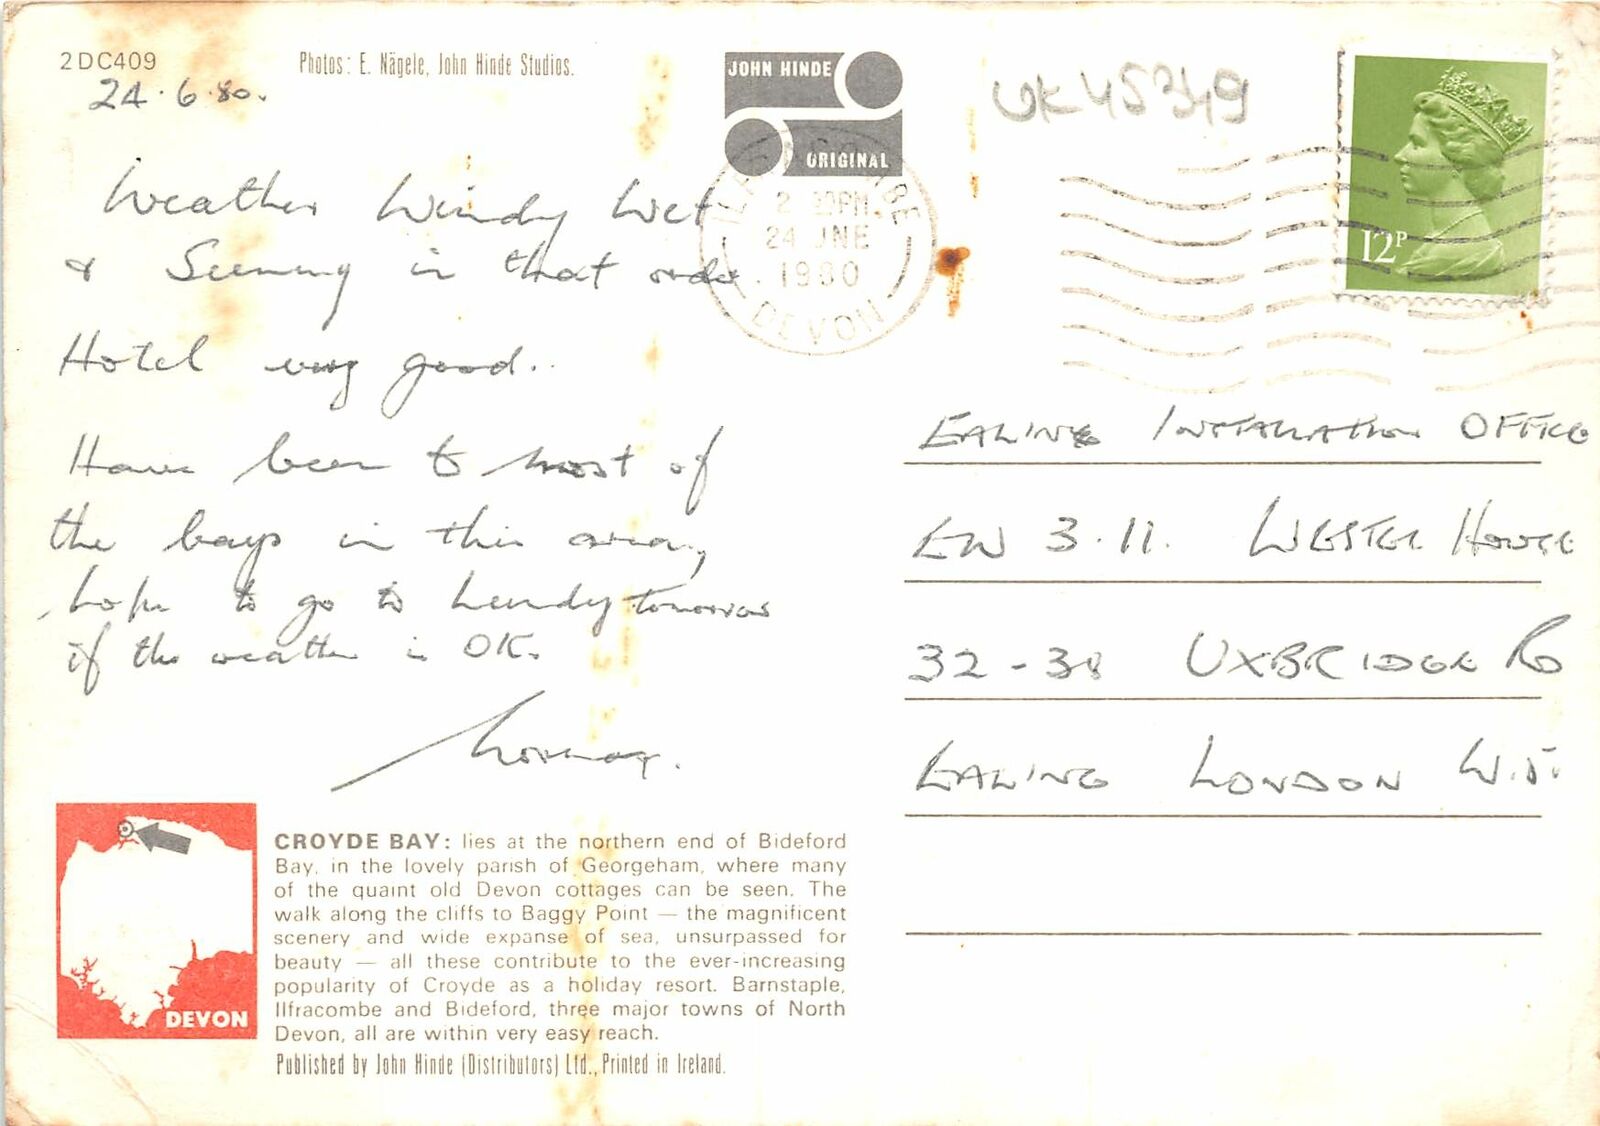 2DC409
Photos: E. Nägele, John Hinde Studios.
24.6.80.
JOHN HINDE
ORIGINAL
UK45349
12P
24 JNE
1980
DEVON
Weather Windy Wet
& Sunny in that order
Hotel very good.
Have been to most of
the bays in this area,
hope to go to Lundy tomorrow
if the weather is OK.
Norman.
EALING INSTALLATION OFFICE
LN 3.11. WESTEL HOUSE
32-38 UXBRIDGE RD
EALING LONDON W.5.
DEVON
CROYDE BAY: lies at the northern end of Bideford
Bay, in the lovely parish of Georgeham, where many
of the quaint old Devon cottages can be seen. The
walk along the cliffs to Baggy Point — the magnificent
scenery and wide expanse of sea, unsurpassed for
beauty — all these contribute to the ever-increasing
popularity of Croyde as a holiday resort. Barnstaple,
Ilfracombe and Bideford, three major towns of North
Devon, all are within very easy reach.
Published by John Hinde (Distributors) Ltd., Printed in Ireland.